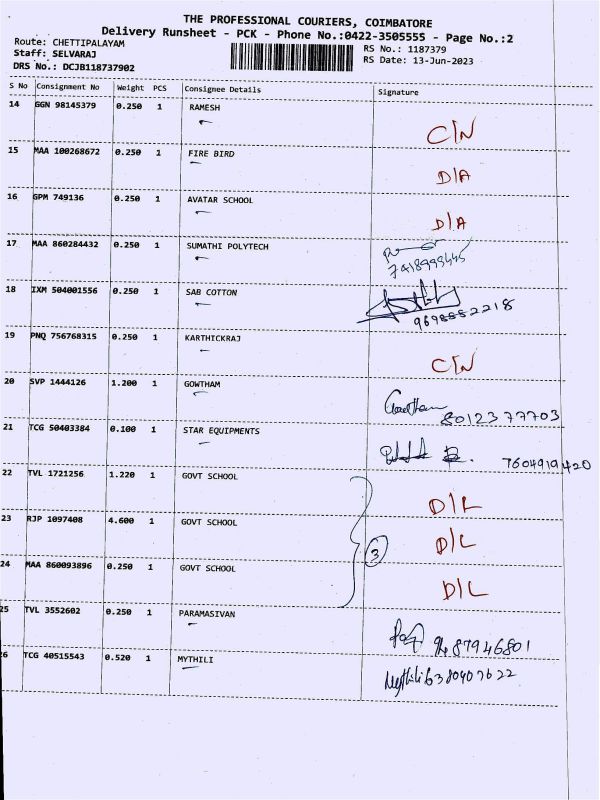 THE PROFESSIONAL COURIERS, COIMBATORE
Delivery Runsheet - PCK - Phone No.:0422-3505555 - Page No.:2
Route: CHETTIPALAYAM RS No.: 1187379
Staff: SELVARAJ RS Date: 13-Jun-2023
DRS No.: DCJB118737902
S No Consignment No Weight PCS Consignee Details Signature
14 GGN 98145379 0.250 1 RAMESH C/N
15 MAA 100268672 0.250 1 FIRE BIRD D/A
16 GPM 749136 0.250 1 AVATAR SCHOOL D/A
17 MAA 860284432 0.250 1 SUMATHI POLYTECH
18 IXM 504001556 0.250 1 SAB COTTON
19 PNQ 756768315 0.250 1 KARTHICKRAJ C/N
20 SVP 1444126 1.200 1 GOWTHAM Gowtham 8012377703
21 TCG 50403384 0.100 1 STAR EQUIPMENTS 7604919420
22 TVL 1721256 1.220 1 GOVT SCHOOL D/L
23 RJP 1097408 4.600 1 GOVT SCHOOL 3 D/L
24 MAA 860093896 0.250 1 GOVT SCHOOL D/L
25 TVL 3552602 0.250 1 PARAMASIVAN
26 TCG 40515543 0.520 1 MYTHILI Mythili